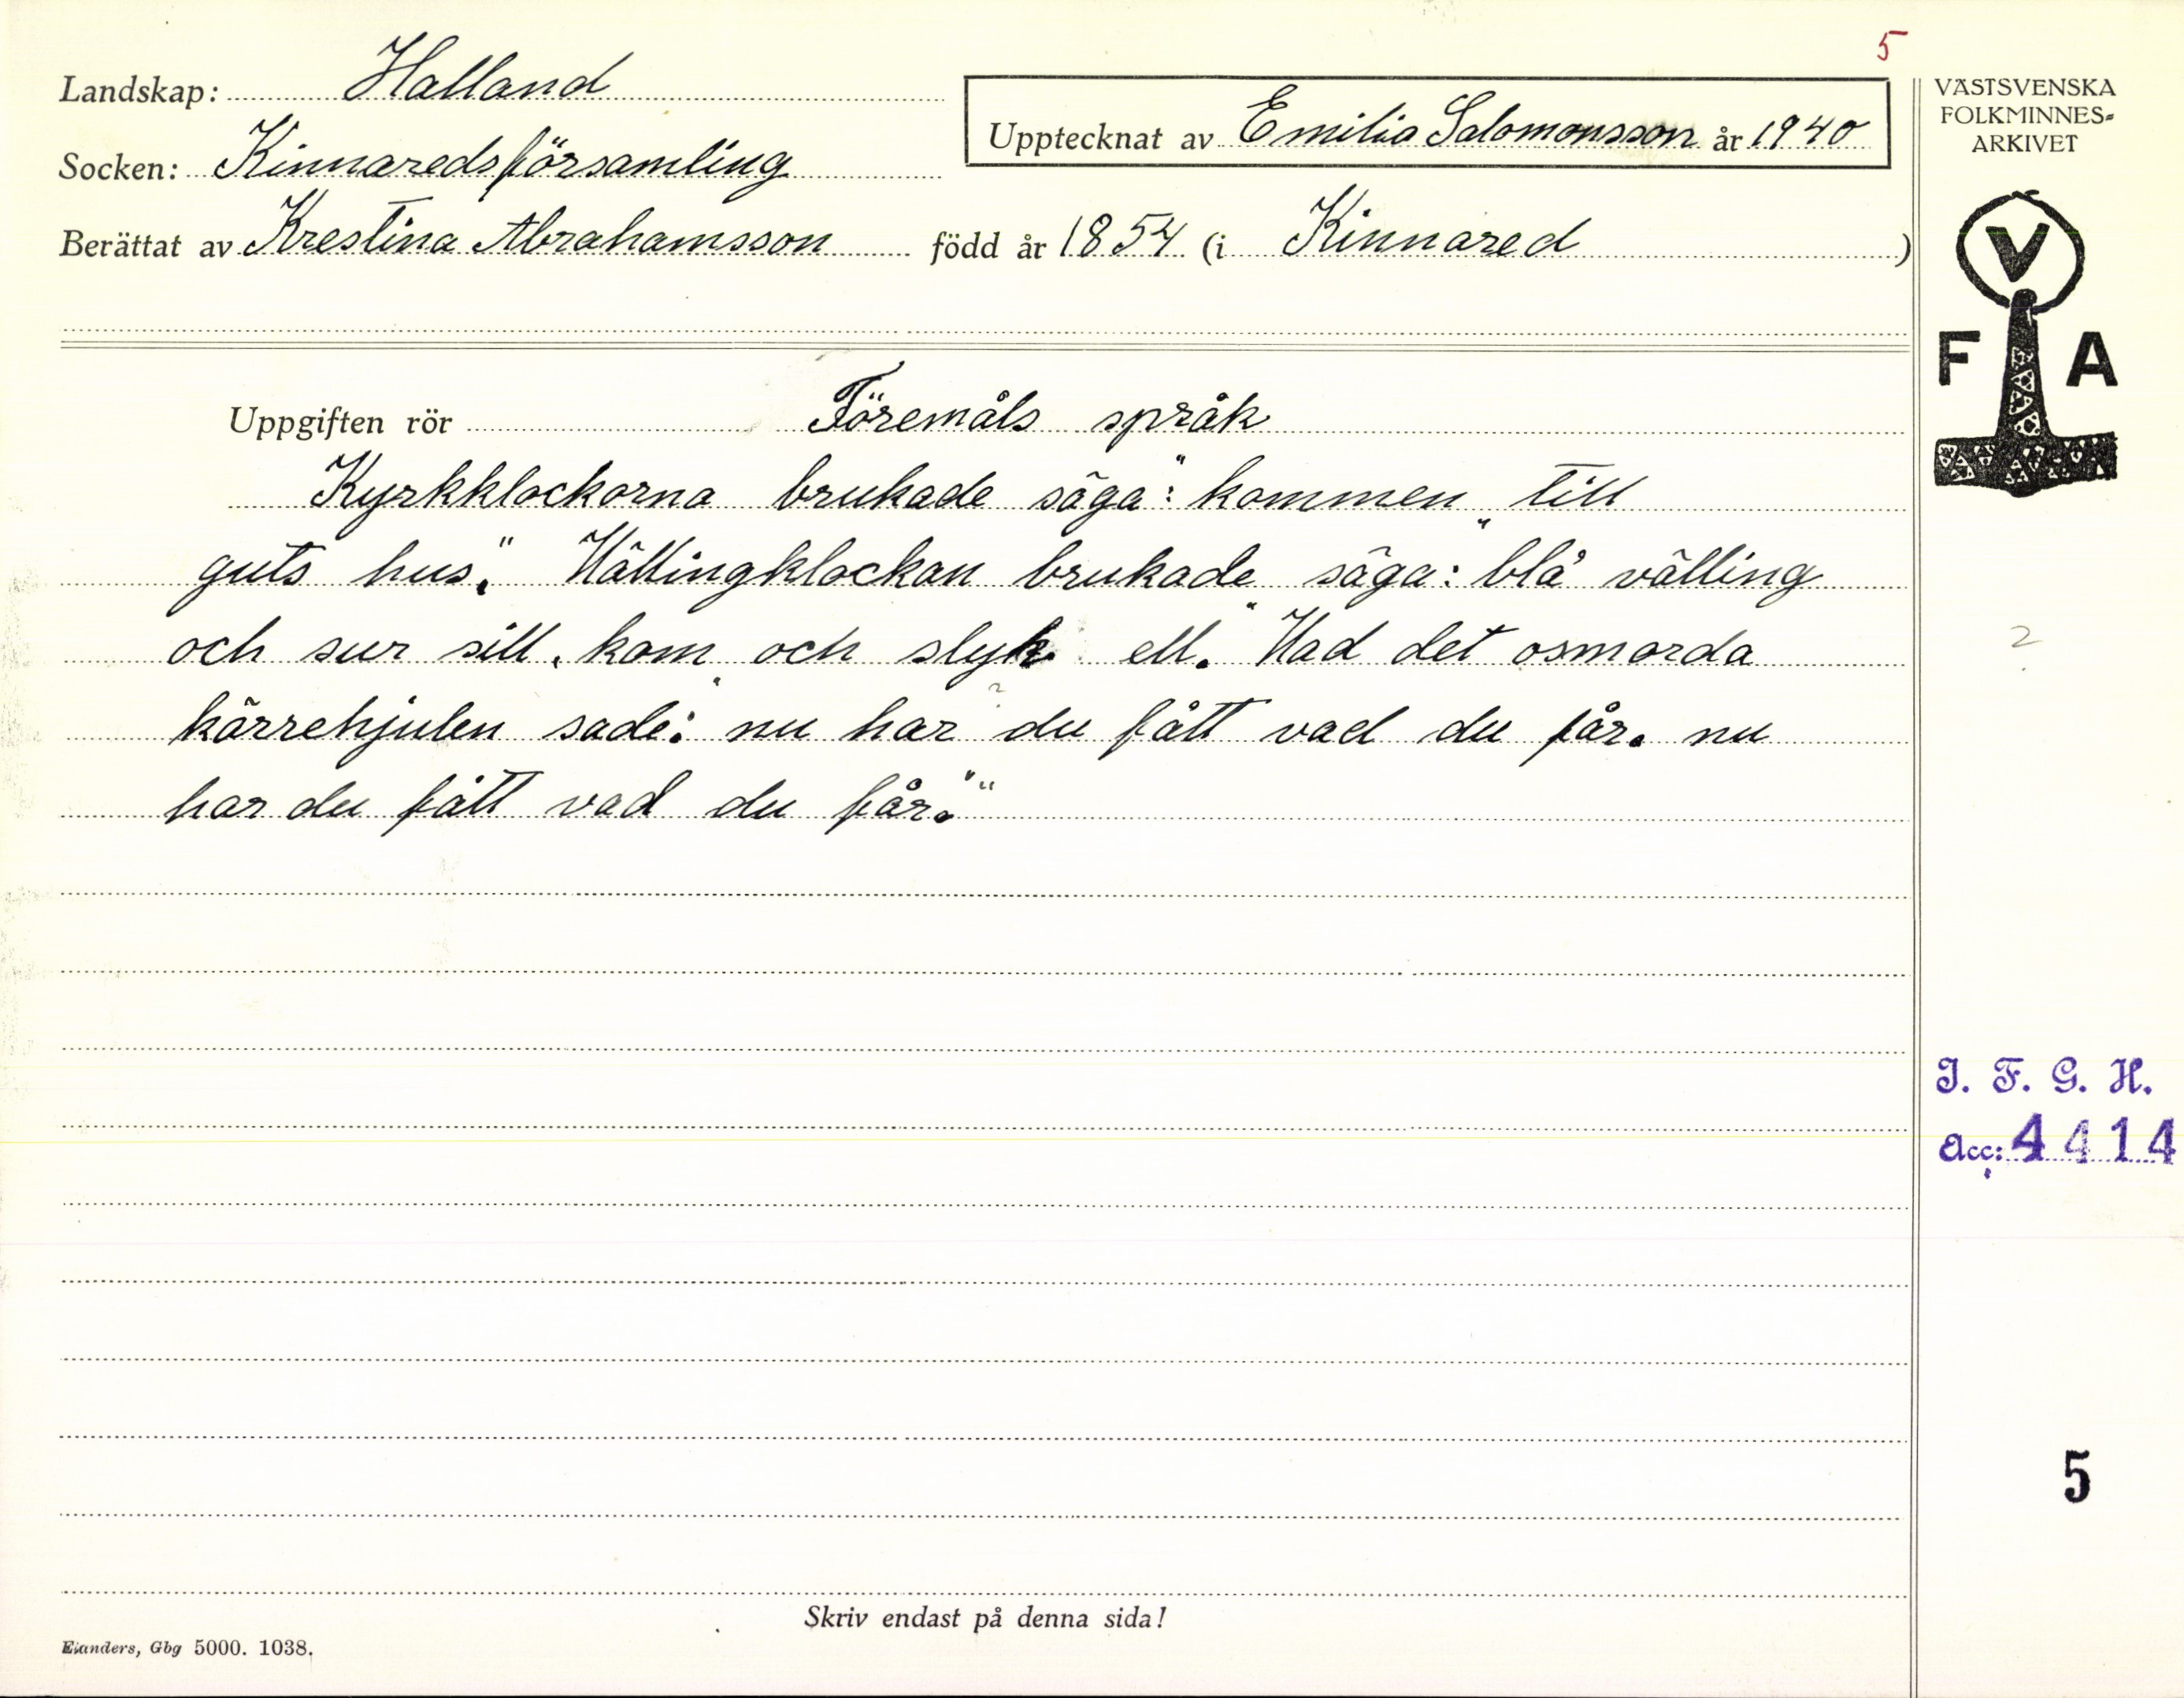 5
Landskap: Halland
Upptecknat av Emilia Salomonsson år 1940
Socken: Kinnaredsförsamling
Berättat av Krestina Abrahamsson född år 1854 (i Kinnared)
VÄSTSVENSKA
FOLKMINNES=
ARKIVET
V
F A
Uppgiften rör Föremåls språk
Kyrkklockorna brukade säga: "kommen till
guts hus." Vällingklockan brukade säga: "blå välling
och sur sill, kom och slyk ell." Vad det osmorda
kärrehjulen sade: "nu har du fått vad du får. nu
har du fått vad du får."
2
I. F. G. H.
Acc: 4414
5
Skriv endast på denna sida!
Elanders, Gbg 5000. 1038.